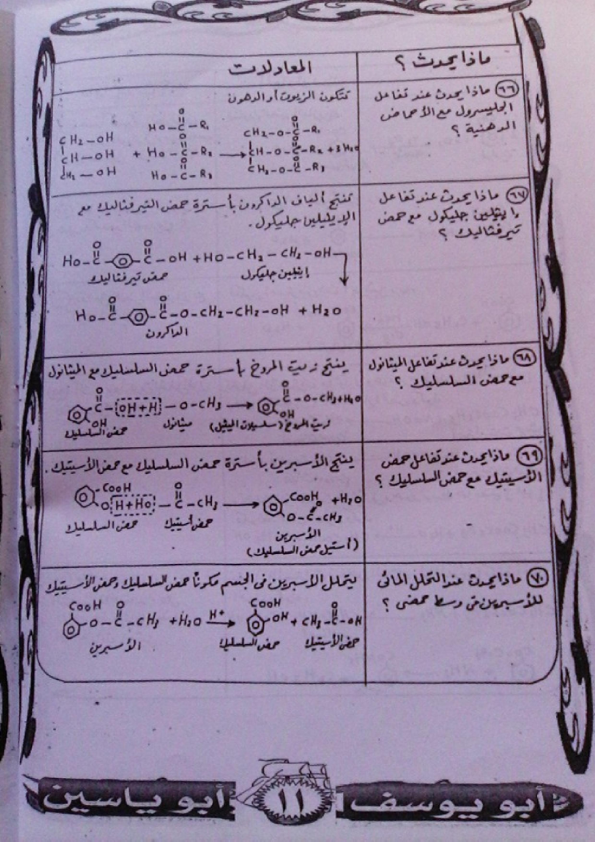 ماذا يحدث ؟
المعادلات
٦٦ ماذا يحدث عند تفاعل
الجليسرول مع الأحماض
الدهنية ؟
تتكون الزيوت أو الدهون
CH2-OH HO-C-R1 CH2-O-C-R1
CH-OH + HO-C-R2 → CH-O-C-R2 + 3H2O
CH2-OH HO-C-R3 CH2-O-C-R3
٦٧ ماذا يحدث عند تفاعل
الإيثلين جليكول مع حمض
تيرفثاليك ؟
تنتج ألياف الداكرون بأسترة حمض التيرفثاليك مع
الإيثيلين جليكول.
HO-C-C-OH + HO-CH2-CH2-OH
حمض تيرفثاليك إيثلين جليكول
HO-C-C-O-CH2-CH2-OH + H2O
الداكرون
٦٨ ماذا يحدث عند تفاعل الميثانول
مع حمض السلسليك ؟
ينتج زيت المروخ بأسترة حمض السلسليك مع الميثانول
C-OH+H-O-CH3 → C-O-CH3+H2O
OH OH
حمض السلسليك ميثانول زيت المروخ (سلسيلات الميثيل)
٦٩ ماذا يحدث عند تفاعل حمض
الأسيتيك مع حمض السلسليك ؟
ينتج الأسبرين بأسترة حمض السلسليك مع حمض الأسيتيك.
COOH COOH
O H+HO-C-CH3 → O-C-CH3 +H2O
حمض السلسليك حمض أسيتيك الأسبرين
(أستيل حمض السلسليك)
٧٠ ماذا يحدث عند التحلل المائى
للأسبرين فى وسط حمضى ؟
يتحلل الأسبرين فى الجسم مكوناً حمض السلسليك وحمض الأسيتيك
COOH COOH
O-C-CH3 +H2O H+ → OH + CH3-C-OH
الأسبرين حمض السلسليك حمض الأسيتيك
أبو يوسف ١١ أبو ياسين